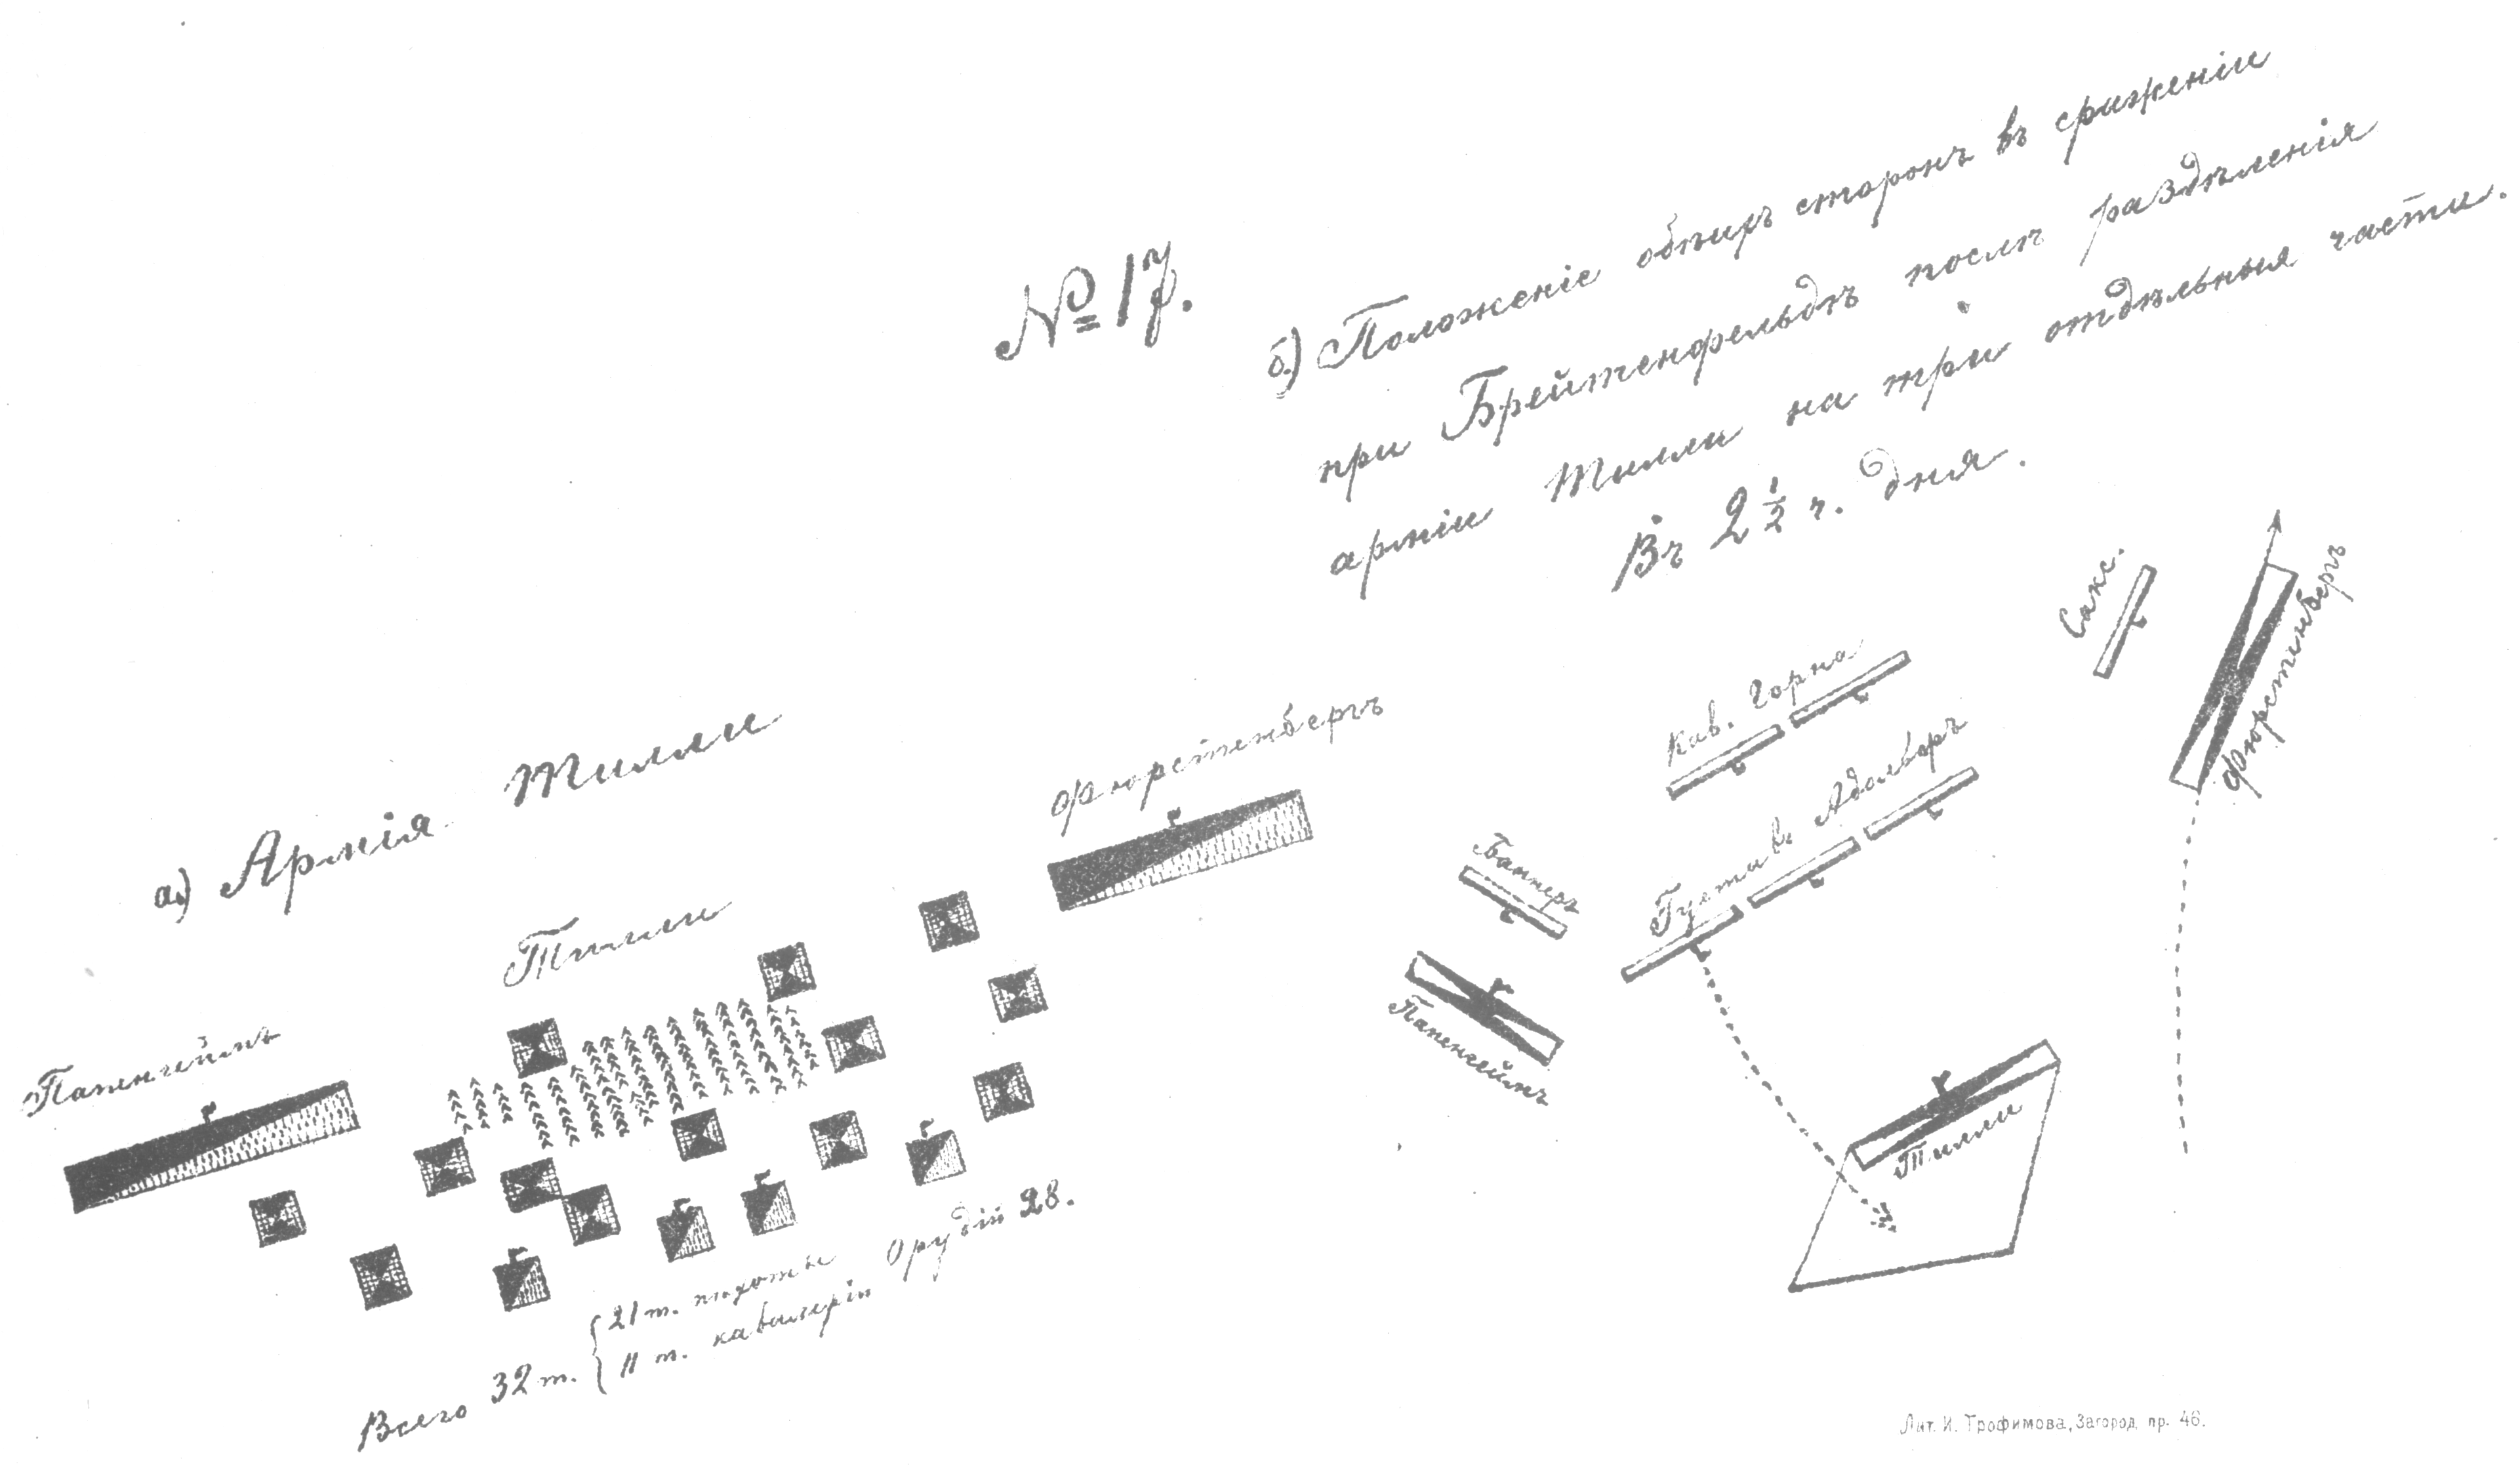 № 17.
а) Армія Тилли
Тилли
Фюрстенбергъ
Папенгеймъ
Всего 32 т. { 21 т. пѣхоты
11 т. кавалеріи
Орудій 28.
б) Положеніе обѣихъ сторонъ въ сраженіи
при Брейтенфельдѣ послѣ раздѣленія
арміи Тилли на три отдѣльныя части.
Въ 2 1/2 ч. дня.
Сакс.
Фюрстенбергъ
Кав. Горна
Густавъ Адольфъ
Баннеръ
Папенгеймъ
Тилли
Лит. И. Трофимова, Загород. пр. 46.